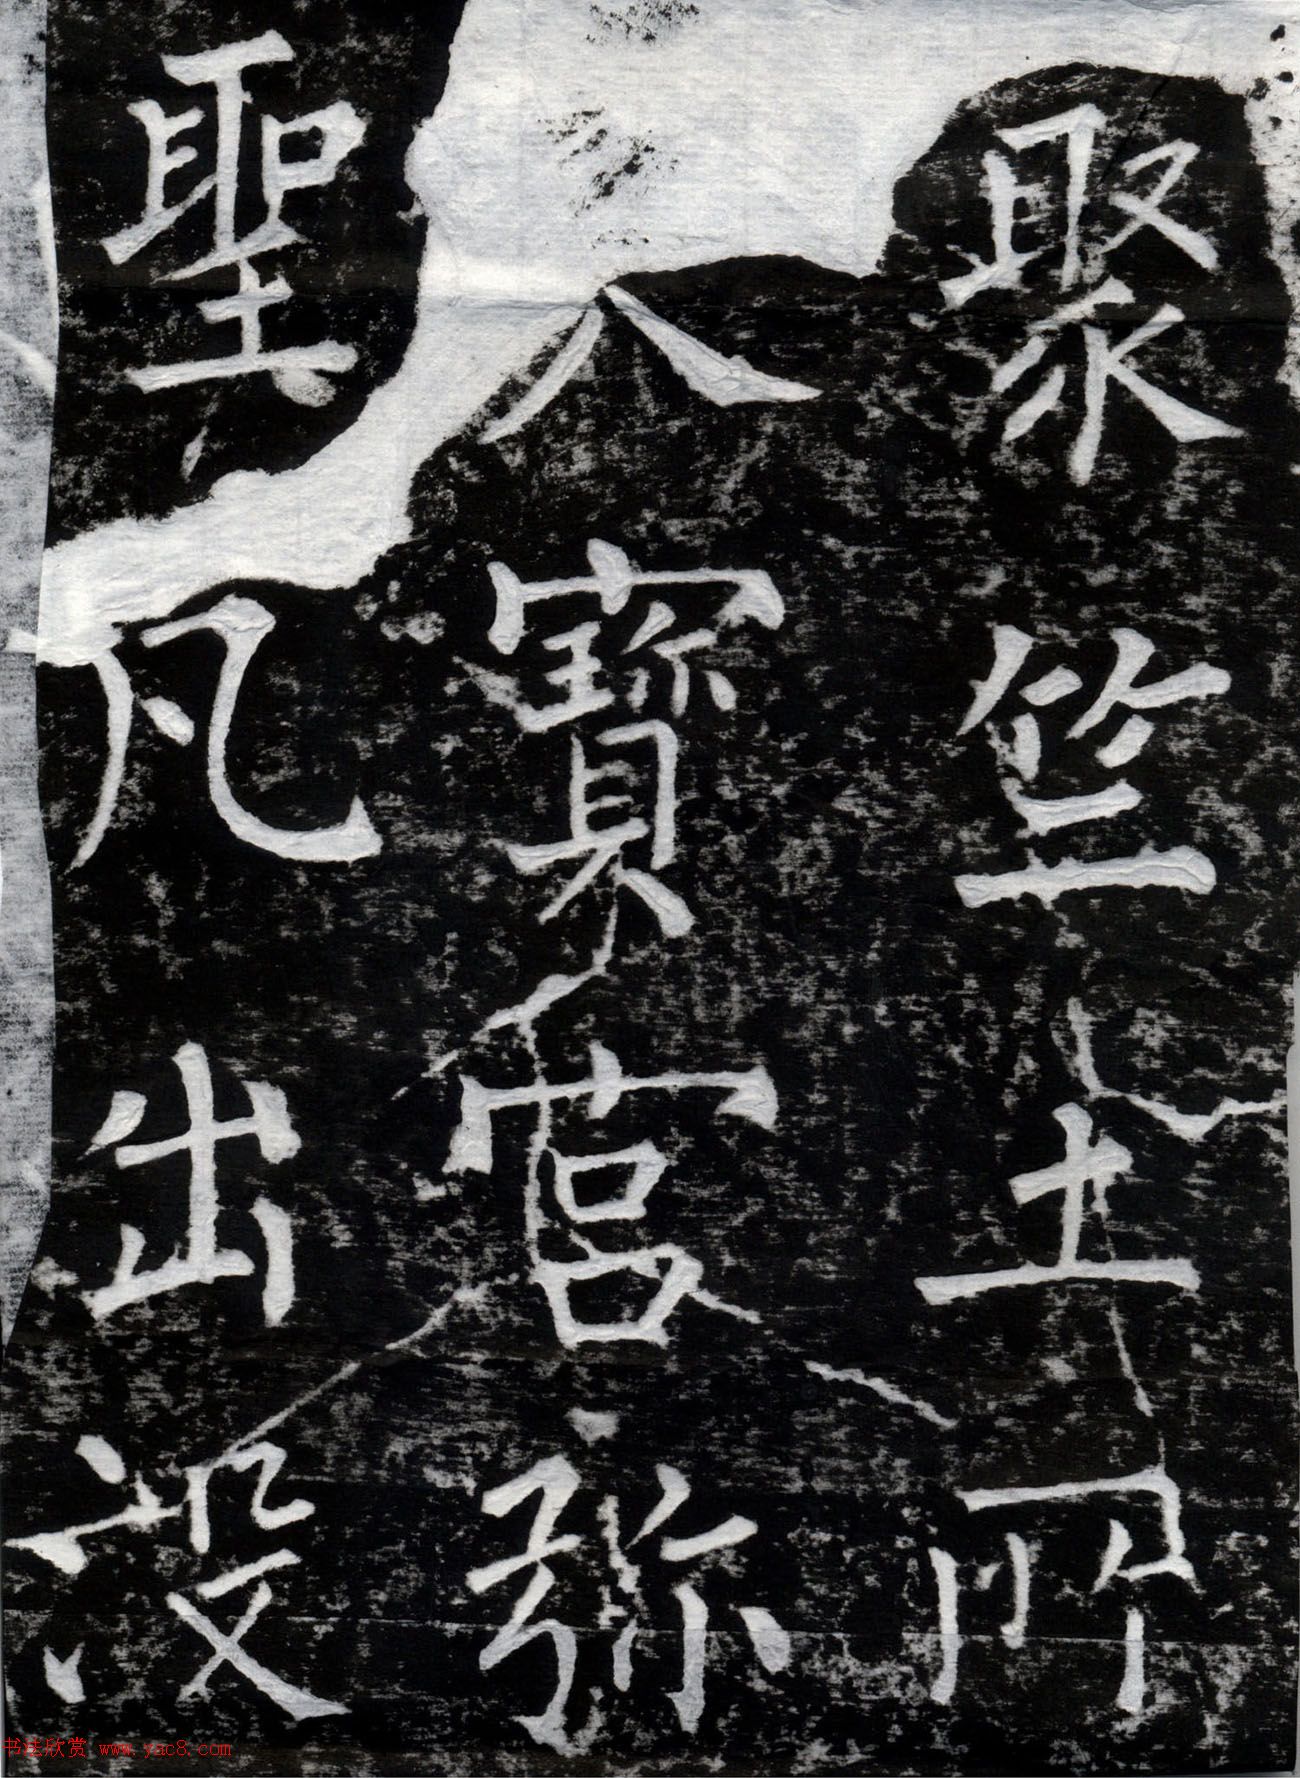 聚竺土
入寶宮弥
聖凡出没
书法欣赏 www.yac8.com